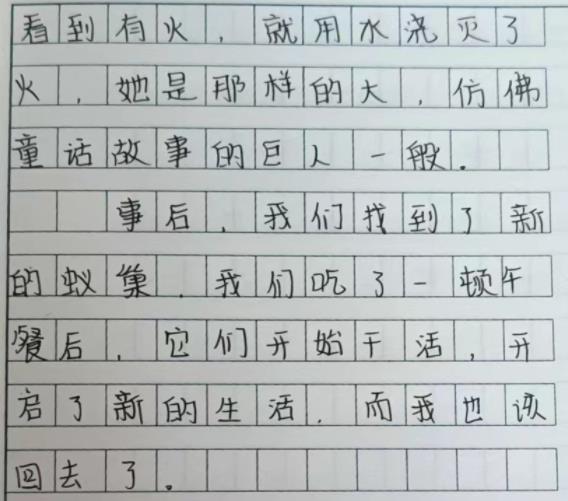 看到有火，就用水浇灭了
火，她是那样的大，仿佛
童话故事的巨人一般.
事后，我们找到了新
的蚁巢.我们吃了一顿午
餐后，它们开始干活，开
启了新的生活.而我也该
回去了。